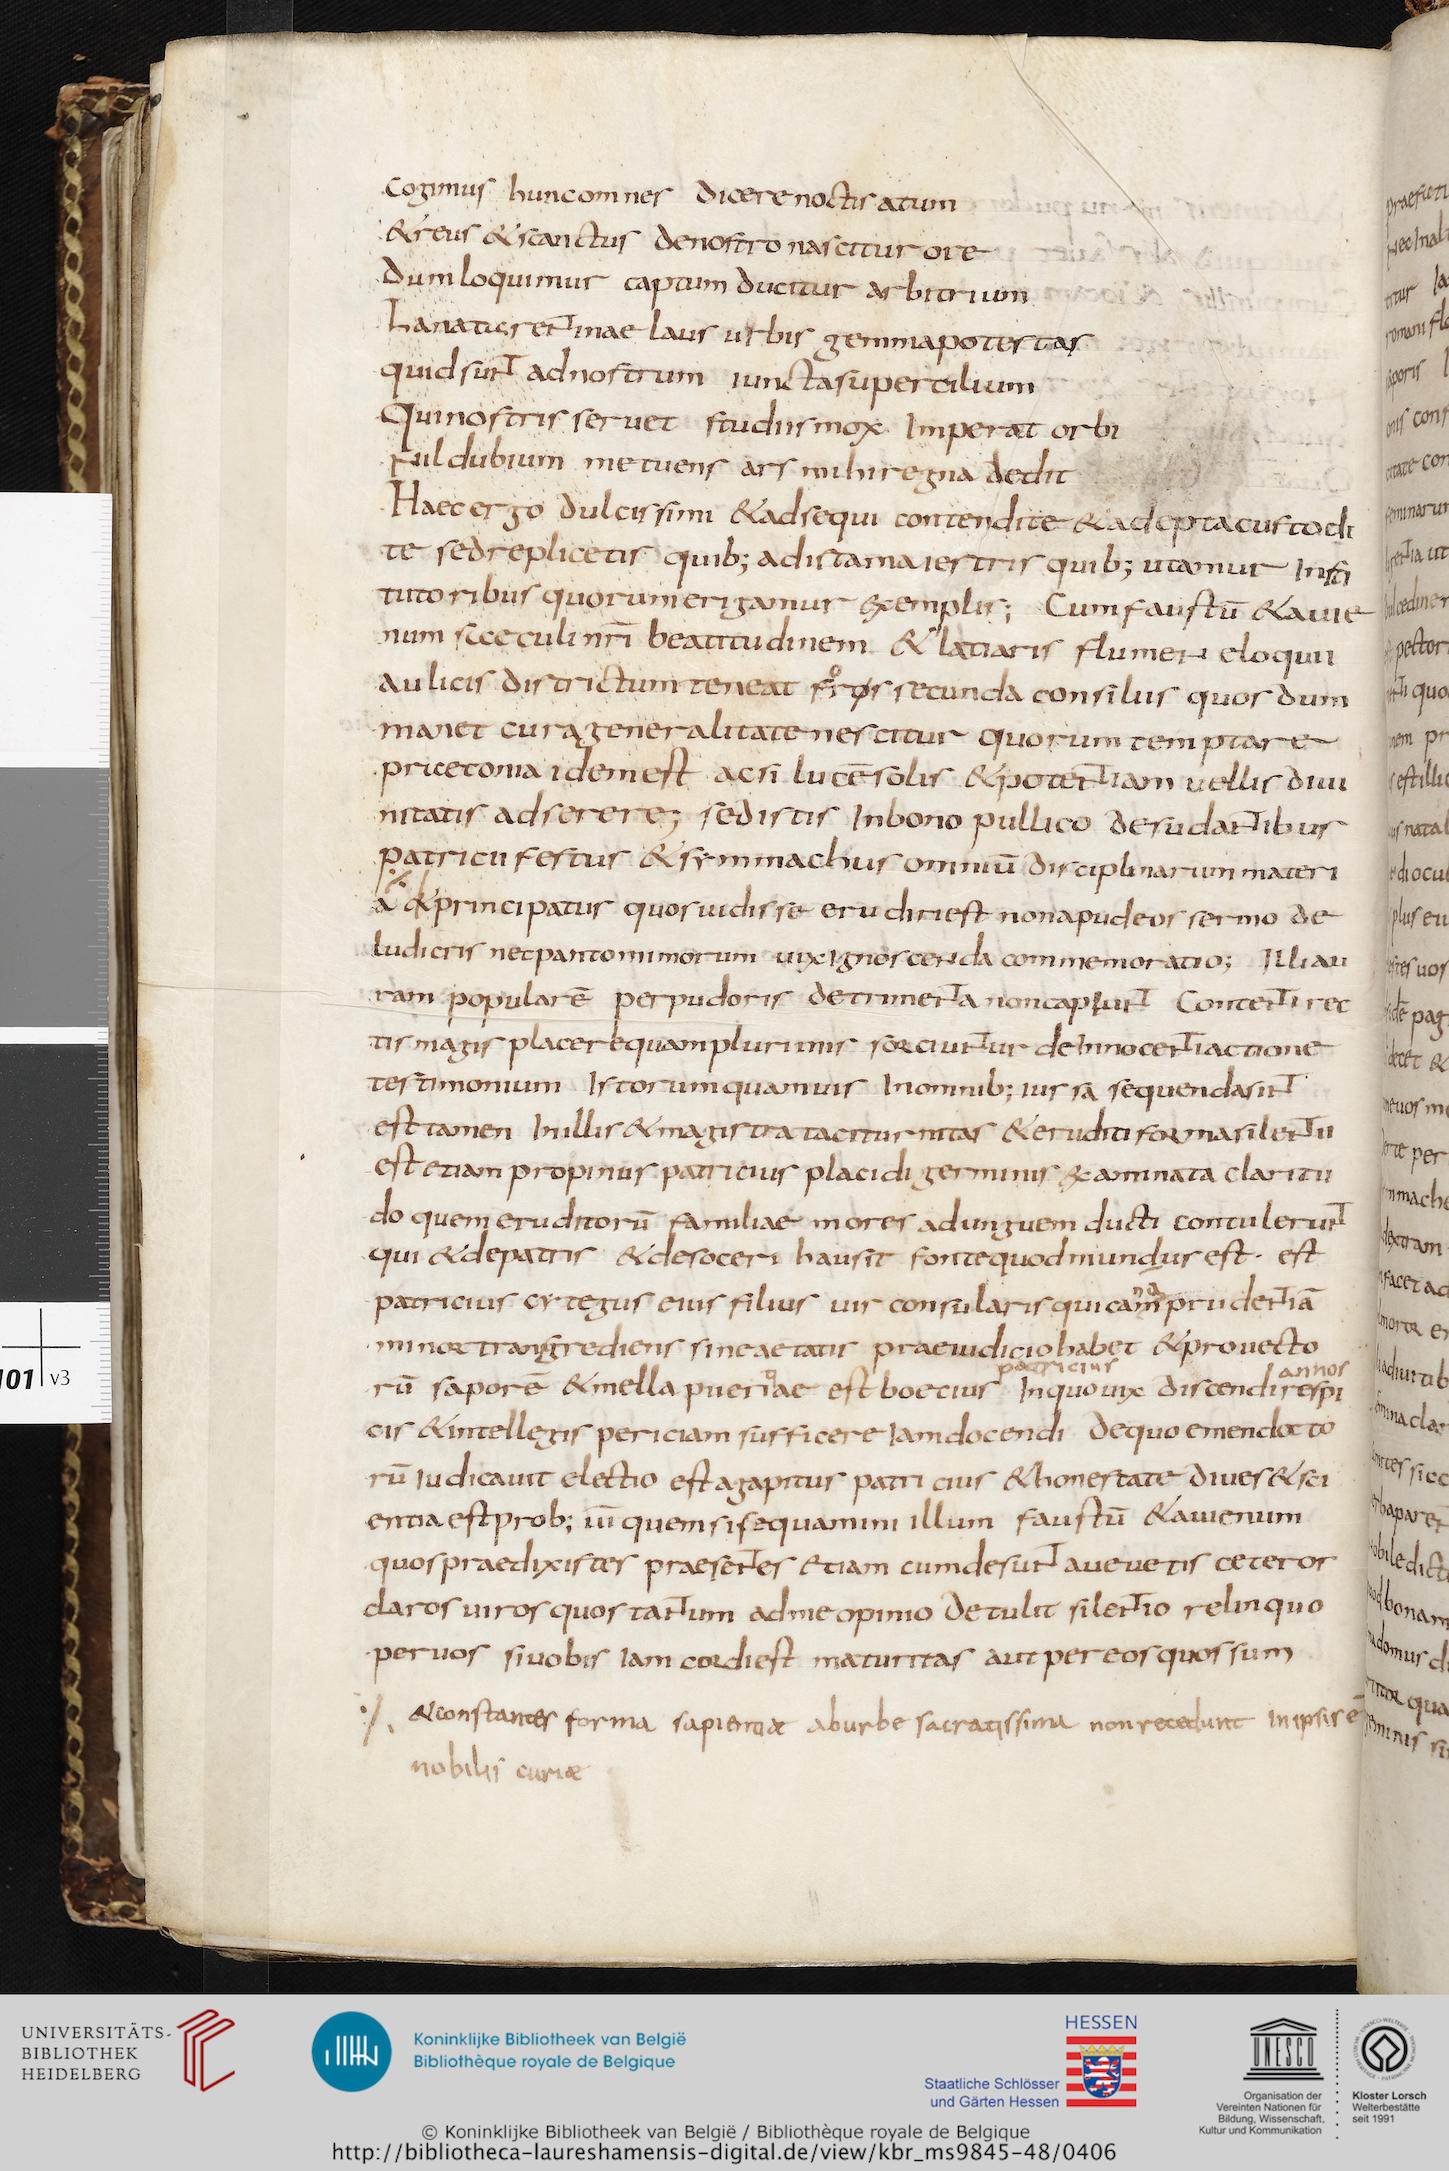 cogimus hunc omnes dicere noctis atum
& reus & scanctus de nostro nascitur ore
Dum loquimur captum ducitur arbitrium
Lanatics retinae laus urbis gemma potestas
quid sunt ad nostrum iuncta supercilium
Qui nostris seruet studiis mox Imperat orbi
Fil dubium metuens ars mihi regna dedit
Haec ergo dulcissimi & adsequi contendite & adepta custodi
te sed replicetis quib; adistamaiestris quib; utamur Insti
tutoribus quorum erigamur exemplis; Cum faustū & auie
num sceculi nr̄i beatitudinem & latiaris flumen eloquii
aulicis districtum teneat fros secunda consiliis quos dum
manet cura generalitate nescitur quorum temptare
pricetonia idem est acsi lucē solis & potentiam uellis diui
nitatis adserere; sed istis In bono pullico desudantibus
patricii festus & symmachus omniū disciplinarum materi
a & principatus quos uidisse eruditi est non apud eos sermo de
ludicris nec pantomimorum uix Ignoscenda commemoratio; Illi au
ram popularē per pudoris detrimenta non captunt Contenti rec
tis magis placere quam plurimis sorciuntur de Innocenti actione
testimonium Istorum quamuis In omnib; iussa sequenda sint
est tamen In illis & magistra taciturnitas & eruditi forma silentii
est etiam propinus patricius placidi germinis examinata claritu
do quem eruditorū familiae mores ad unguem ducti contulerunt
qui & de patris & de soceri hausit fonte quod mundus est. est
patricius cytegus eius filius uir consularis qui cam prudentiā
minor transgrediens sine aetatis praeiudicio habet & prouecto
patricius annos
rū saporē & mella pueriae est boecius In quo uix discendi respi
cis & intellegis periciam sufficere Iam docendi De quo emendacto
rū Iudicauit electio est agapitus patricius & honestate diues & sci
entia est prob; iū quem si sequamini illum faustū & auienum
quos praedixi stes praesentes etiam cum desunt aueuetis ceteros
claros uiros quos tantum ad me opinio detulit silentio relinquo
per uos si uobis Iam cordi est maturitas aut per eos quos sum
&constantes forma sapientiae ab urbe sacratissima non recedunt in ipsis ē
nobilis curiae
praefuti
titur
romani flo
onis cons
feminarum
pectori
est illic
us natal
plus eu
tes uos
pag
euos me
te per
mmache
dextram
facetad
adiutib
obile dict
bonam
domus di
UNIVERSITÄTS-
BIBLIOTHEK
HEIDELBERG
Koninklijke Bibliotheek van België
Bibliothèque royale de Belgique
HESSEN
Staatliche Schlösser
und Gärten Hessen
UNESCO
Organisation der
Vereinten Nationen für
Bildung, Wissenschaft,
Kultur und Kommunikation
Kloster Lorsch
Welterbestätte
seit 1991
101 v3
© Koninklijke Bibliotheek van België / Bibliothèque royale de Belgique
http://bibliotheca-laureshamensis-digital.de/view/kbr_ms9845-48/0406